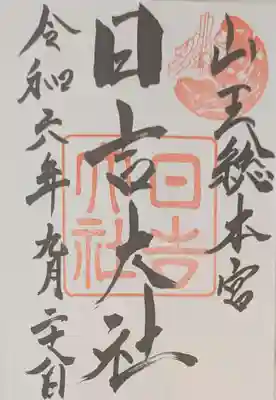 山王総本宮
日吉大社
令和六年九月二十八日
日吉
大社